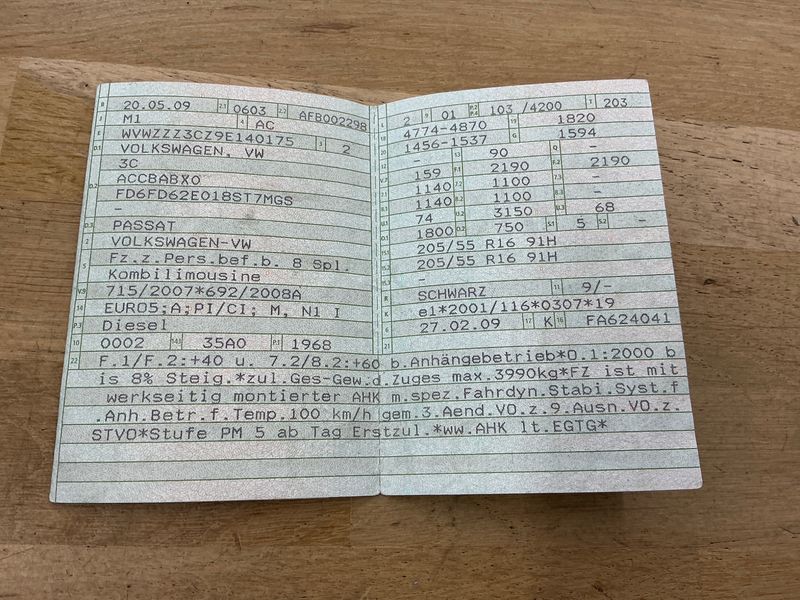 B 20.05.09 2.1 0603 2.2 AFB002298
M1 4 AC
E WVWZZZ3CZ9E140175 3 2
D.1 VOLKSWAGEN, VW
3C
D.2 ACCBABX0
FD6FD62E018ST7MGS
-
D.3 PASSAT
2 VOLKSWAGEN-VW
5 Fz.z.Pers.bef.b. 8 Spl.
Kombilimousine
V.9 715/2007*692/2008A
14 EURO5;A;PI/CI; M, N1 I
P.3 Diesel
10 0002 14.1 35A0 P.1 1968
L 2 9 01 P.2 P.4 103 /4200 T 203
18 4774-4870 19 1820
1456-1537 G 1594
- 13 90 Q -
V.7 159 F.1 2190 F.2 2190
7.1 1140 7.2 1100 7.3 -
8.1 1140 8.2 1100 8.3 -
U.1 74 U.2 3150 U.3 68
O.1 1800 O.2 750 S.1 5 S.2 -
15.1 205/55 R16 91H
15.2 205/55 R16 91H
15.3 -
R SCHWARZ 11 9/-
K e1*2001/116*0307*19
6 27.02.09 17 K 16 FA624041
21
22 F.1/F.2:+40 u. 7.2/8.2:+60 b.Anhängebetrieb*O.1:2000 b
is 8% Steig.*zul.Ges-Gew.d.Zuges max.3990kg*FZ ist mit
werkseitig montierter AHK m.spez.Fahrdyn.Stabi.Syst.f
.Anh.Betr.f.Temp.100 km/h gem.3.Aend.VO.z.9.Ausn.VO.z.
STVO*Stufe PM 5 ab Tag Erstzul.*ww.AHK lt.EGTG*